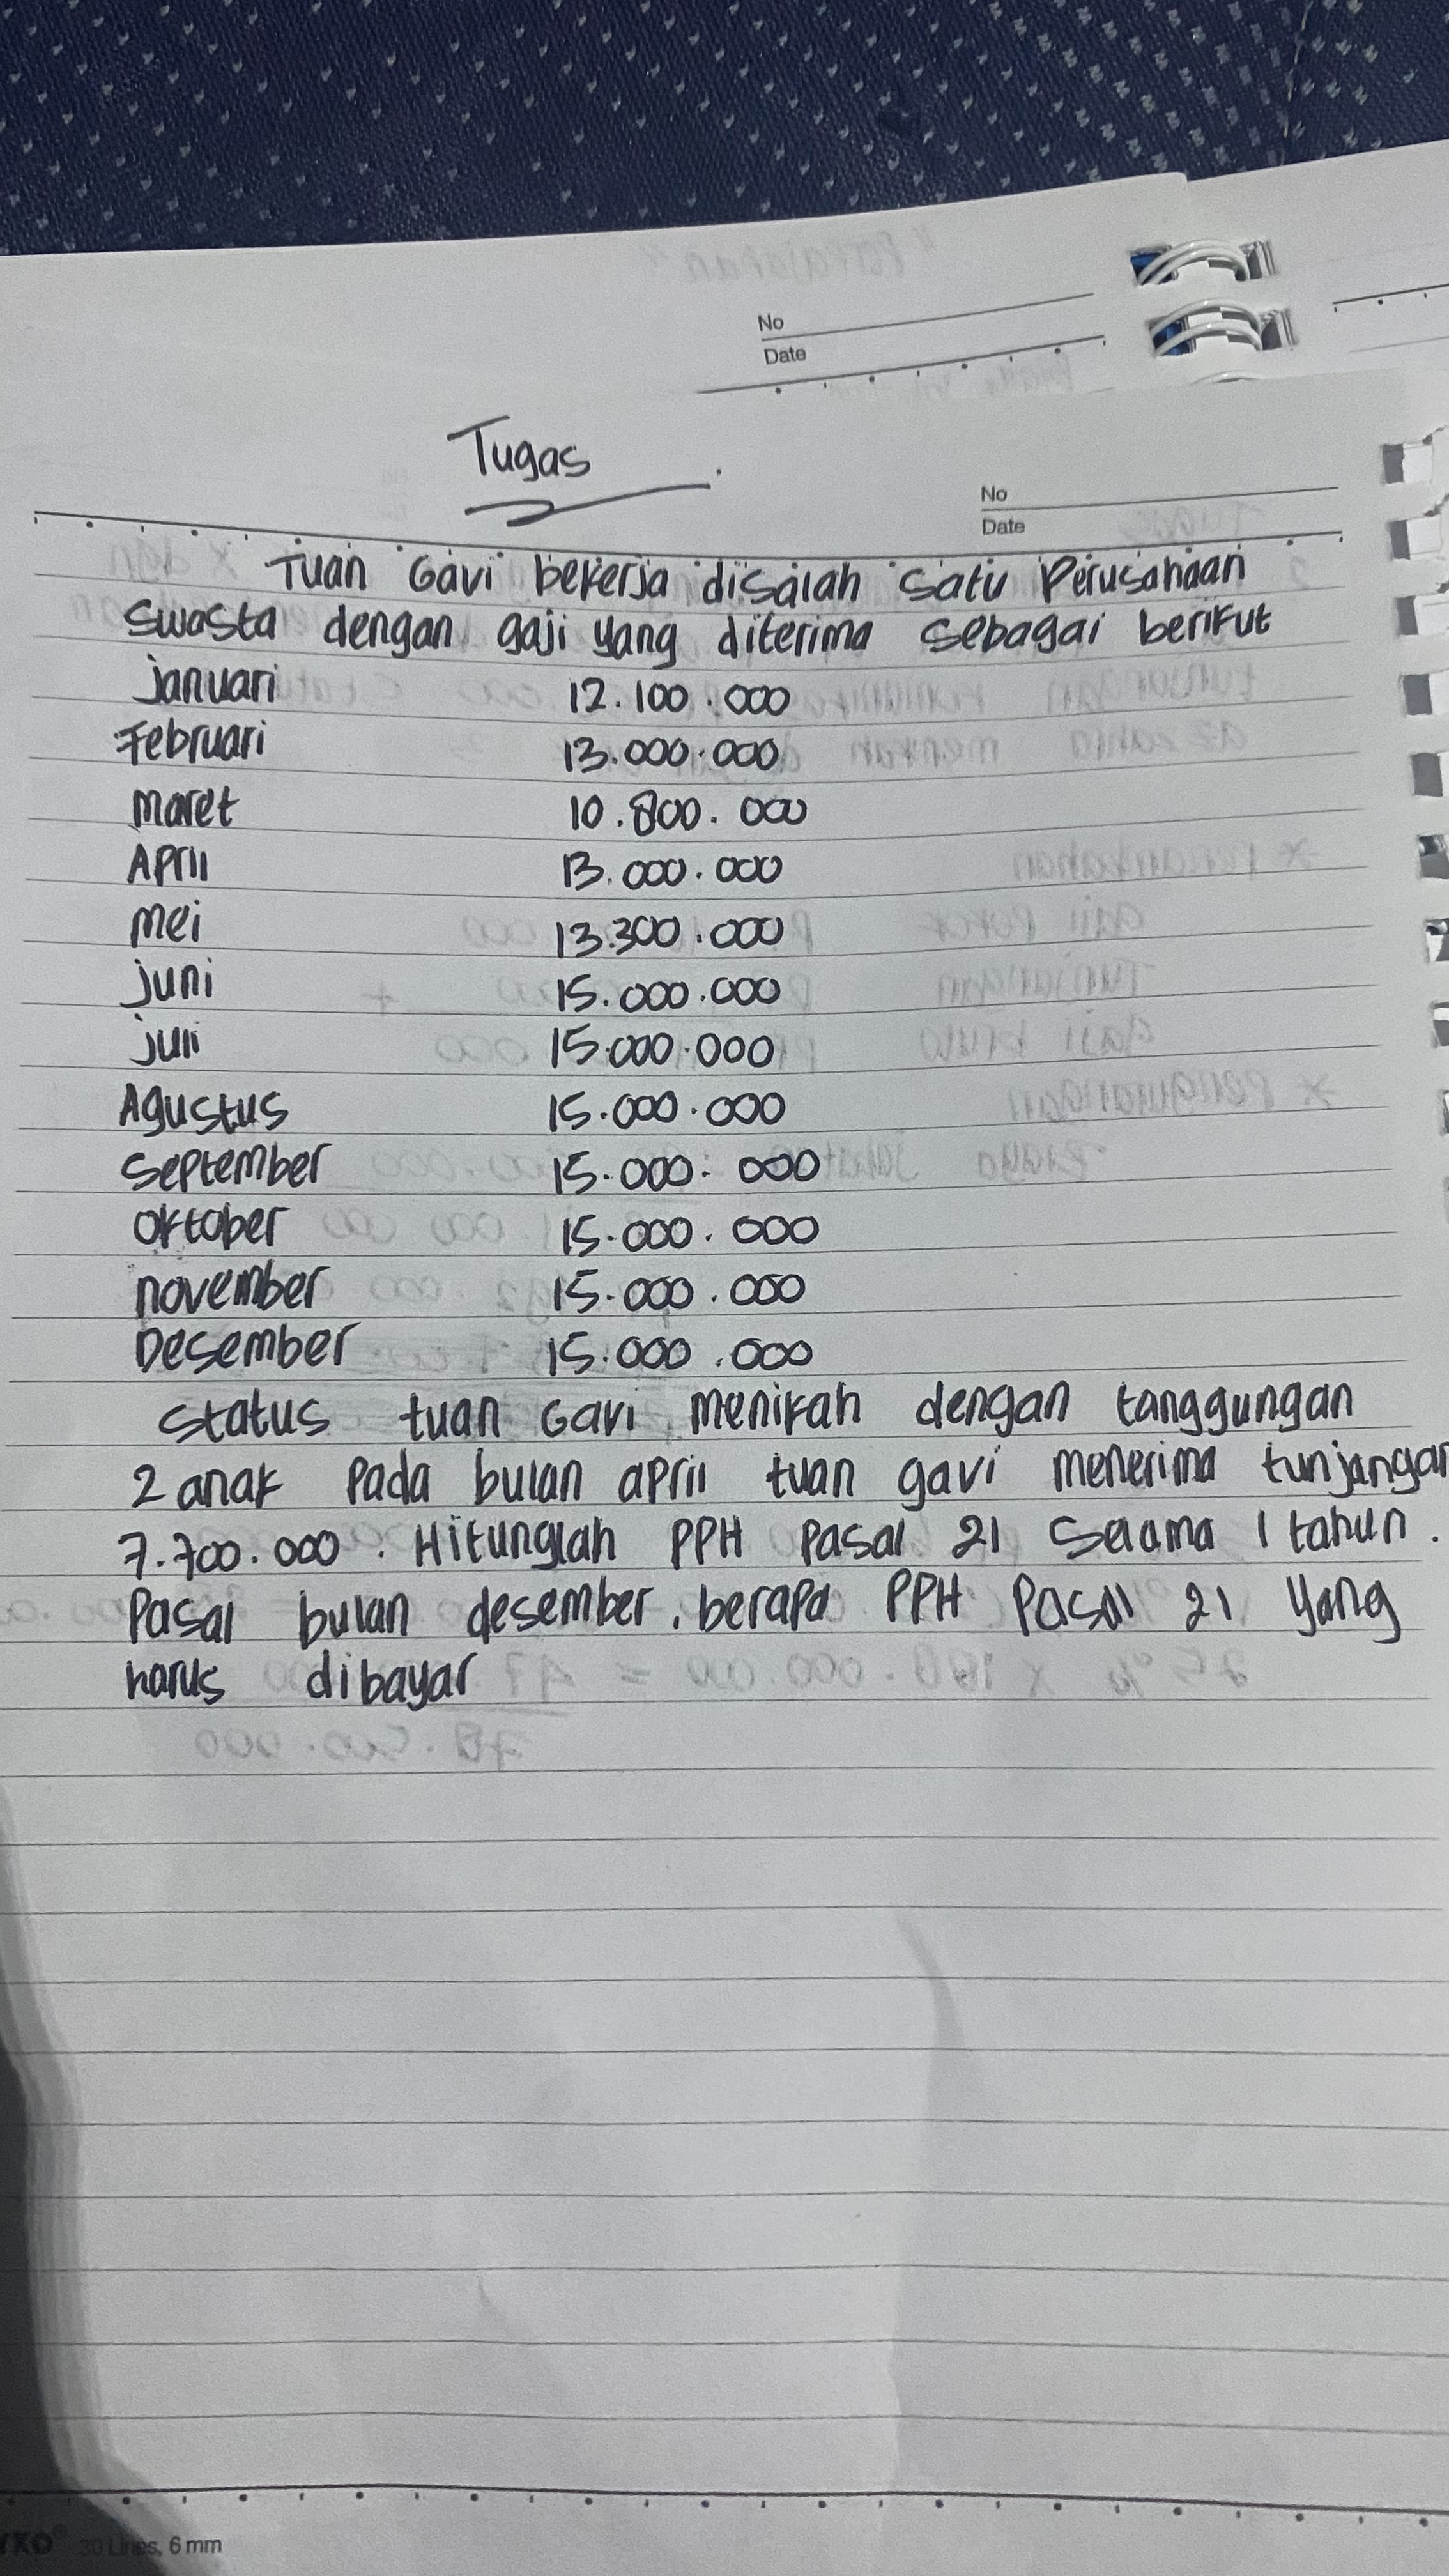 No
Date
Tugas
No
Date
Tuan Gavi bekerja disalah satu Perusahaan
swasta dengan gaji yang diterima sebagai berikut
januari 12.100.000
Februari 13.000.000
maret 10.800.000
April 13.000.000
mei 13.300.000
juni 15.000.000
juli 15.000.000
Agustus 15.000.000
September 15.000.000
Oktober 15.000.000
november 15.000.000
Desember 15.000.000
status tuan Gavi menikah dengan tanggungan
2 anak Pada bulan april tuan gavi menerima tunjangan
7.700.000. Hitunglah PPH Pasal 21 selama 1 tahun.
Pasal bulan desember, berapa PPH Pasal 21 yang
harus dibayar
30 Lines, 6 mm